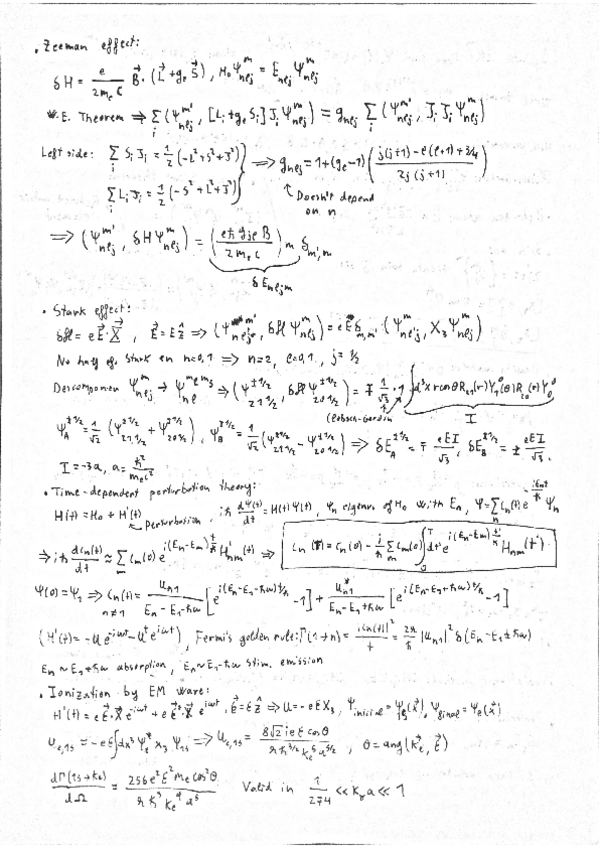 • Zeeman effect:
δH = e/(2mₑc) B⃗ · (L⃗ + gₑ S⃗), H₀ψᵐₙₗⱼ = Eₙₗⱼ ψᵐₙₗⱼ
W.E. Theorem ⇒ Σᵢ (ψᵐ'ₙₗⱼ, [Lᵢ + gₑ Sᵢ] Jᵢ ψᵐₙₗⱼ) = gₙₗⱼ Σᵢ (ψᵐ'ₙₗⱼ, Jᵢ Jᵢ ψᵐₙₗⱼ)
Left side: Σᵢ Sᵢ Jᵢ = 1/2 (-L² + S² + J²)
Σᵢ Lᵢ Jᵢ = 1/2 (-S² + L² + J²) ⇒ gₙₗⱼ = 1 + (gₑ - 1) ( (j(j+1) - ℓ(ℓ+1) + 3/4) / (2j(j+1)) )
↑ Doesn't depend
on n
⇒ (ψᵐ'ₙₗⱼ, δH ψᵐₙₗⱼ) = (eħ gⱼₗ B / 2mₑc) m δₘ',ₘ
δEₙₗⱼₘ
• Stark effect:
δH = e E⃗ · X⃗, E⃗ = E ẑ ⇒ (ψᵐ'ₙₗ'ⱼ, δH ψᵐₙₗⱼ) = e E δₘ,ₘ' (ψᵐₙₗ'ⱼ, X₃ ψᵐₙₗⱼ)
No hay ef. Stark en n=0,1 ⇒ n=2, ℓ=0,1, j=1/2
Descomponen ψᵐₙₗⱼ → ψₙₗ^(mₗ mₛ) ⇒ (ψ^(±1/2)_(2 1 1/2), δH ψ^(±1/2)_(2 0 1/2)) = ∓ 1/√3 · 1 ∫d³x r cosθ R₂₁(r) Y₁⁰(θ) R₂₀(r) Y₀⁰
Clebsch-Gordon I
ψ_A^(±1/2) = 1/√2 (ψ^(±1/2)_(2 1 1/2) + ψ^(±1/2)_(2 0 1/2)), ψ_B^(±1/2) = 1/√2 (ψ^(±1/2)_(2 1 1/2) - ψ^(±1/2)_(2 0 1/2)) ⇒ δE_A^(±1/2) = ∓ eEI/√3, δE_B^(±1/2) = ± eEI/√3.
I = -3a, a = ħ²/(mₑe²)
• Time-dependent perturbation theory:
H(t) = H₀ + H'(t) perturbation, iħ dψ(t)/dt = H(t) ψ(t), ψₙ eigenv of H₀ with Eₙ, ψ = Σₙ cₙ(t) e^(-iEₙt/ħ) ψₙ
⇒ iħ dcₙ(t)/dt ≈ Σₘ cₘ(0) e^(i(Eₙ-Eₘ)t/ħ) H'ₙₘ(t) ⇒ cₙ(T) = cₙ(0) - i/ħ Σₘ cₘ(0) ∫₀ᵀ dt' e^(i(Eₙ-Eₘ)t'/ħ) Hₙₘ(t')
ψ(0) = ψ₁ ⇒ cₙ(t) n≠1 = Uₙ₁/(Eₙ-E₁-ħω) [e^(i(Eₙ-E₁-ħω)t/ħ) - 1] + U*ₙ₁/(Eₙ-E₁+ħω) [e^(i(Eₙ-E₁+ħω)t/ħ) - 1]
(H'(t) = -U e^(-iωt) - U† e^(iωt)), Fermi's golden rule: Γ(1→n) = |cₙ(t)|²/t = 2π/ħ |Uₙ₁|² δ(Eₙ-E₁±ħω)
Eₙ ~ E₁+ħω absorption, Eₙ ~ E₁-ħω stim. emission
• Ionization by EM wave:
H'(t) = e E⃗·X⃗ e^(-iωt) + e E⃗*·X⃗ e^(iωt), E⃗ = E ẑ ⇒ U = -e E X₃, ψ_initial = ψ₁ₛ(x⃗), ψ_final = ψₑ(x⃗)
Uₑ,₁ₛ = -e E ∫dx³ ψₑ* x₃ ψ₁ₛ ⇒ Uₑ,₁ₛ = 8√2 i e E cosθ / (π ħ^(3/2) kₑ⁵ a^(5/2)), θ = ang(k⃗ₑ, E⃗)
dΓ(1s→kₑ)/dΩ = 256 e² E² mₑ cos²θ / (π ħ³ kₑ⁹ a⁵) Valid in 1/274 << kᵧa << 1